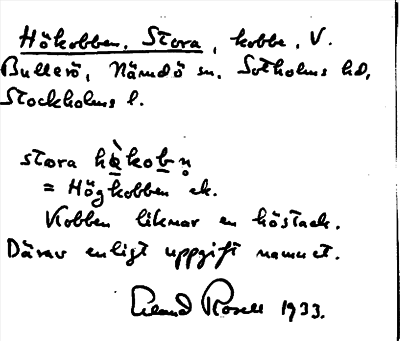 Hökobben, Stora, kobbe, V.
Bullerö, Nämdö sn, Sotholms hd,
Stockholms l.
stora hökobn
= Högkobben ek.
Kobben liknar en höstack.
Därav enligt uppgift namnet.
Erland Rosell 1933.